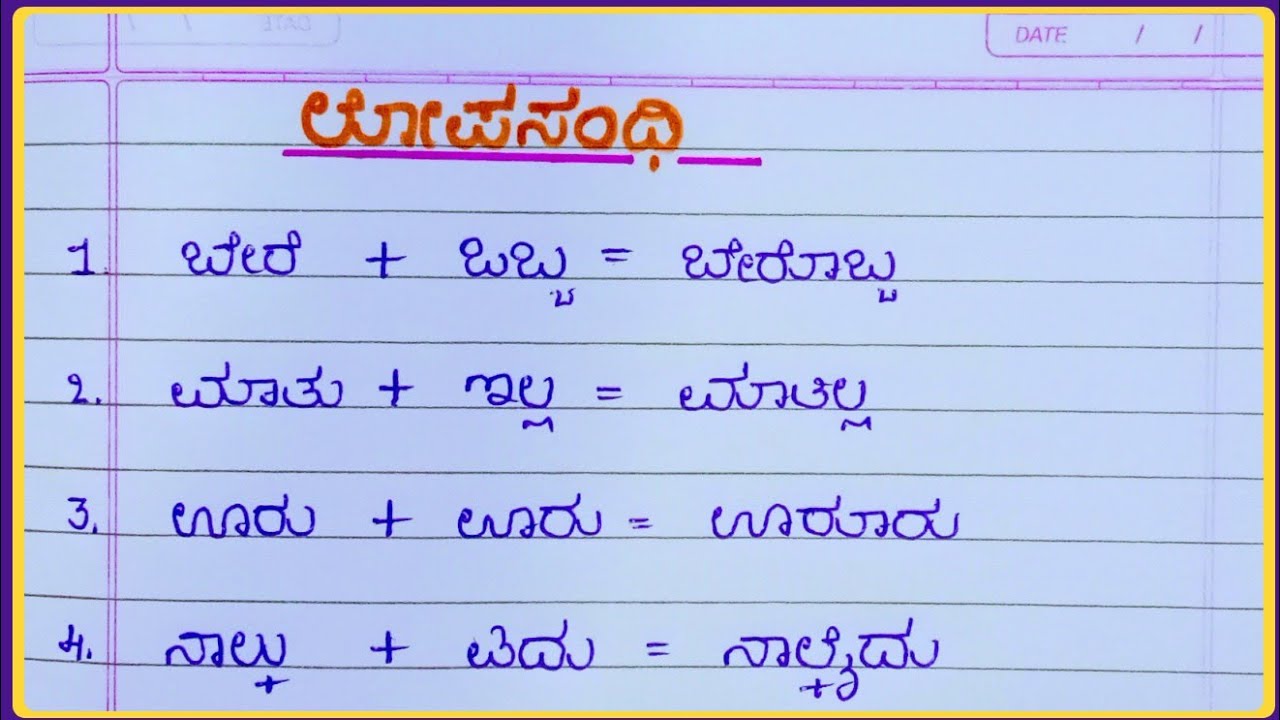 DATE / /
ಲೋಪಸಂಧಿ
1. ಬೇರೆ + ಒಬ್ಬ = ಬೇರೊಬ್ಬ
2. ಮಾತು + ಇಲ್ಲ = ಮಾತಿಲ್ಲ
3. ಊರು + ಊರು = ಊರೂರು
4. ನಾಲ್ಕು + ಐದು = ನಾಲ್ಕೈದು